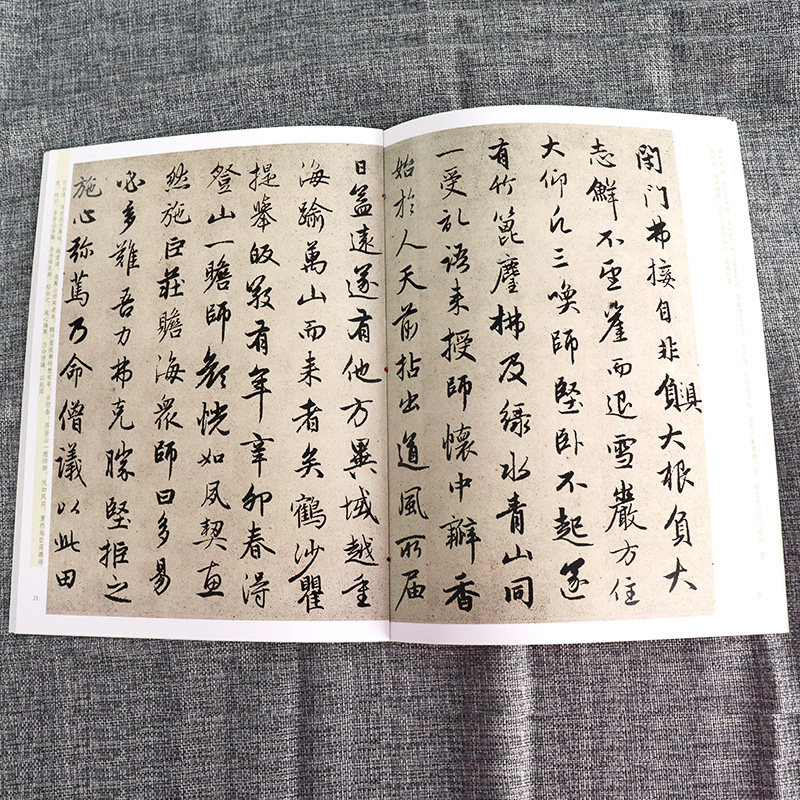 閉门弗接自非負具大根負大
志鮮不望崖而退雪巖方住
大仰凢三喚師堅卧不起遂
有竹篦麈拂及緑水青山同
一受記語来授師懷中瓣香
始於人天前拈出道風所届
日益遠遂有他方異域越重
海踰萬山而来者矣鶴沙瞿
提舉皈敬有年辛卯春得
登山一瞻師顔恍如夙契惠
然施巨莊贍海衆師曰多易
必多難吾力弗克勝堅拒之
施心弥篤乃命僧議以此田
21